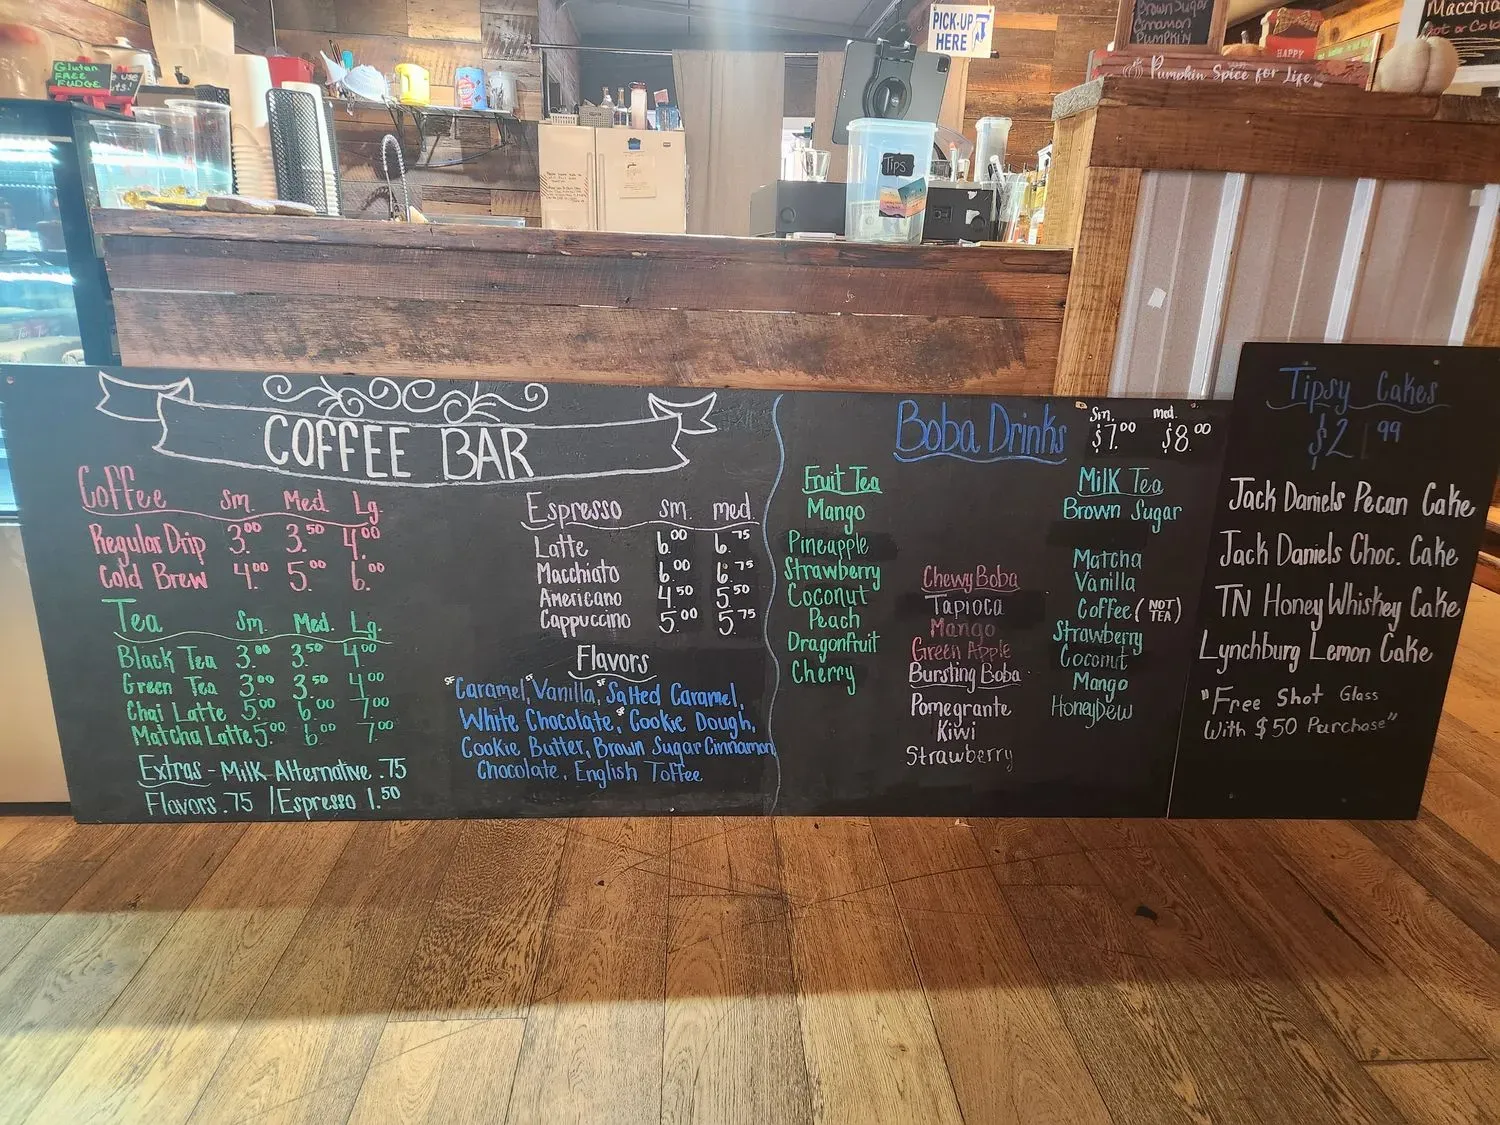 PICK-UP
HERE
Brown Sugar
Cinnamon
Pumpkin
Macchia
Hot or Cold
HAPPY
Pumpkin Spice for Life
Gluten
FREE
FUDGE
Tips
COFFEE BAR
Coffee Sm. Med. Lg.
Regular Drip 3.00 3.50 4.00
Cold Brew 4.00 5.00 6.00
Tea Sm. Med. Lg.
Black Tea 3.00 3.50 4.00
Green Tea 3.00 3.50 4.00
Chai Latte 5.00 6.00 7.00
Matcha Latte 5.00 6.00 7.00
Extras - Milk Alternative .75
Flavors .75 / Espresso 1.50
Espresso sm. med.
Latte 6.00 6.75
Macchiato 6.00 6.75
Americano 4.50 5.50
Cappuccino 5.00 5.75
Flavors
SF Caramel, SF Vanilla, SF Salted Caramel,
White Chocolate, SF Cookie Dough,
Cookie Butter, Brown Sugar Cinnamon
Chocolate, English Toffee
Boba Drinks
Sm. med.
$7.00 $8.00
Fruit Tea
Mango
Pineapple
Strawberry
Coconut
Peach
Dragonfruit
Cherry
Chewy Boba
Tapioca
Mango
Green Apple
Bursting Boba
Pomegrante
Kiwi
Strawberry
Milk Tea
Brown Sugar
Matcha
Vanilla
Coffee (NOT TEA)
Strawberry
Coconut
Mango
HoneyDew
Tipsy Cakes
$21.99
Jack Daniels Pecan Cake
Jack Daniels Choc. Cake
TN Honey Whiskey Cake
Lynchburg Lemon Cake
"Free Shot Glass
With $50 Purchase"